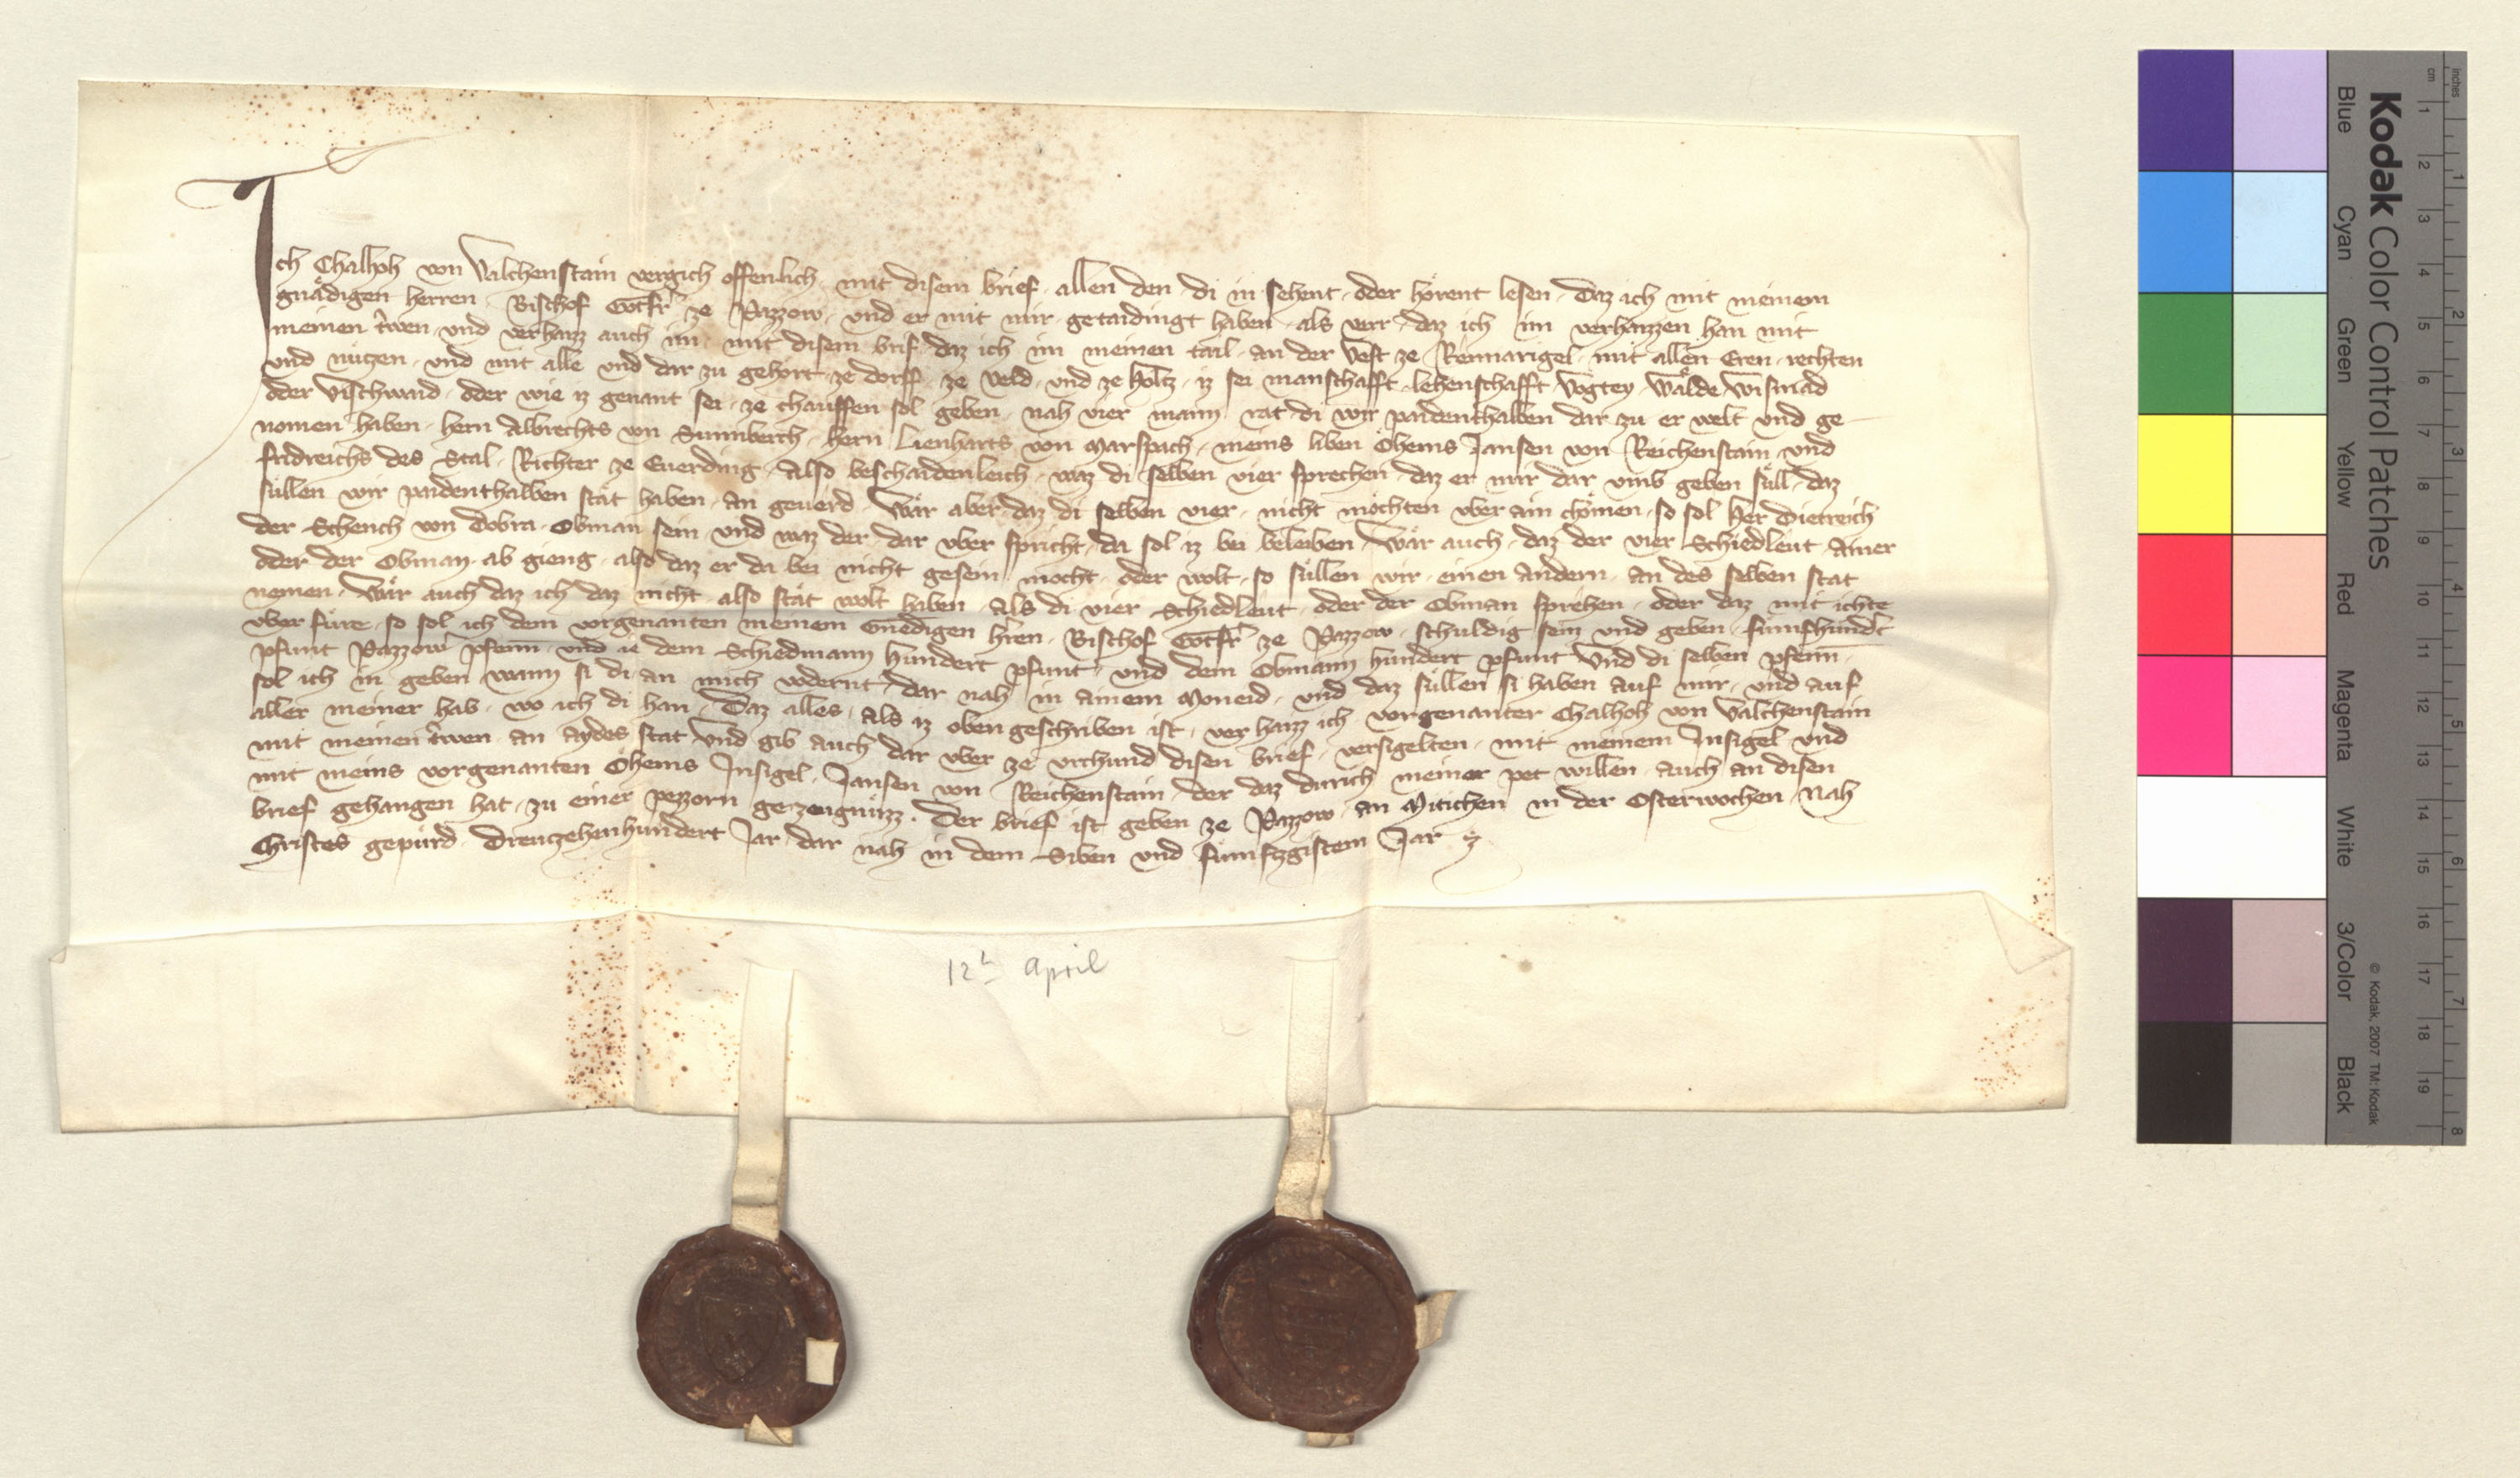 Ich Chalhoh von Valchenstain vergich offenlich mit disem brief allen den di in sehent oder hörent lesen Daz ich mit meinem
gnädigen herren Bischof Gotfr ze Pazzow und er mit mir getaidingt haben als verr daz ich im verhaizzen han mit
meinen trwen und verhaizz auch im mit disem brif daz ich im meinen tail an der Vest ze Rennarigel mit allen Eren rechten
und nützen und mit alle und dar zu gehört ze dorff ze veld und ze holtz iz sei manschafft lehenschafft Vogtey Wälde Wismad
oder Vischwaid oder wie iz genant sei ze chauffen sol geben nah vier mann rat di wir paidenthalben dar zu er welt und ge-
nomen haben hern Albrechts von Sunnberch hern Lienharts von Marspach meins liben Öhems Jansen von Reichenstain und
fridreichs des Stal Richter ze Everding Also beschaidenleich waz di selben vier sprechen daz er mir dar umb geben süll daz
süllen wir paidenthalben stät haben an geuerd Wär aber daz di selben vier nicht möchten vber ain chömen so sol her Dietreich
der Schench von Dobra Obman sein und waz der dar vber spricht da sol iz bei beleiben Wär auch daz der vier Schiedleut ainer
oder der Obman ab gieng also daz er da bei nicht gesein mocht oder wolt so süllen wir einen andern an des selben stat
nemen Wär auch daz ich daz nicht also stät wolt haben als di vier Schiedleut oder der Obman sprehen oder daz mit ichte
vber füre so sol ich dem vorgenanten meinem Gnedigen hren Bischof Gotfr ze Pazzow schuldig sein und geben fümfhundt
pfunt Pazzow pfenn und ie dem Schiedmann hundert pfunt und dem Obmann hundert pfunt Und di selben pfenn
sol ich in geben wann si di an mich vodernt dar nah in ainem Moneid und daz süllen si haben auf mir und auf
aller meiner hab wo ich di han Daz alles als iz oben geschriben ist verhaizz ich vorgenanter Chalhoh von Valchenstain
mit meinen trwen an aydes stat Und gib auch dar vber ze vrchund disen brief versigelten mit meinem Insigel und
mit meins vorgenanten Öhems Insigel Jansen von Reichenstain der daz durich meiner pet willen auch an disen
brief gehangen hat zu einer pezzorn gezeugnüzz. Der brief ist geben ze Pazzow an Mitichen in der Osterwochen Nah
Christes gepürd Dreuzehenhundert Jar dar nah in dem Siben und fümfzgistem Jar
12t April
Kodak Color Control Patches
Blue Cyan Green Yellow Red Magenta White 3/Color Black
© Kodak, 2007 TM: Kodak
cm 1 2 3 4 5 6 7 8 9 10 11 12 13 14 15 16 17 18 19
Inches 1 2 3 4 5 6 7 8